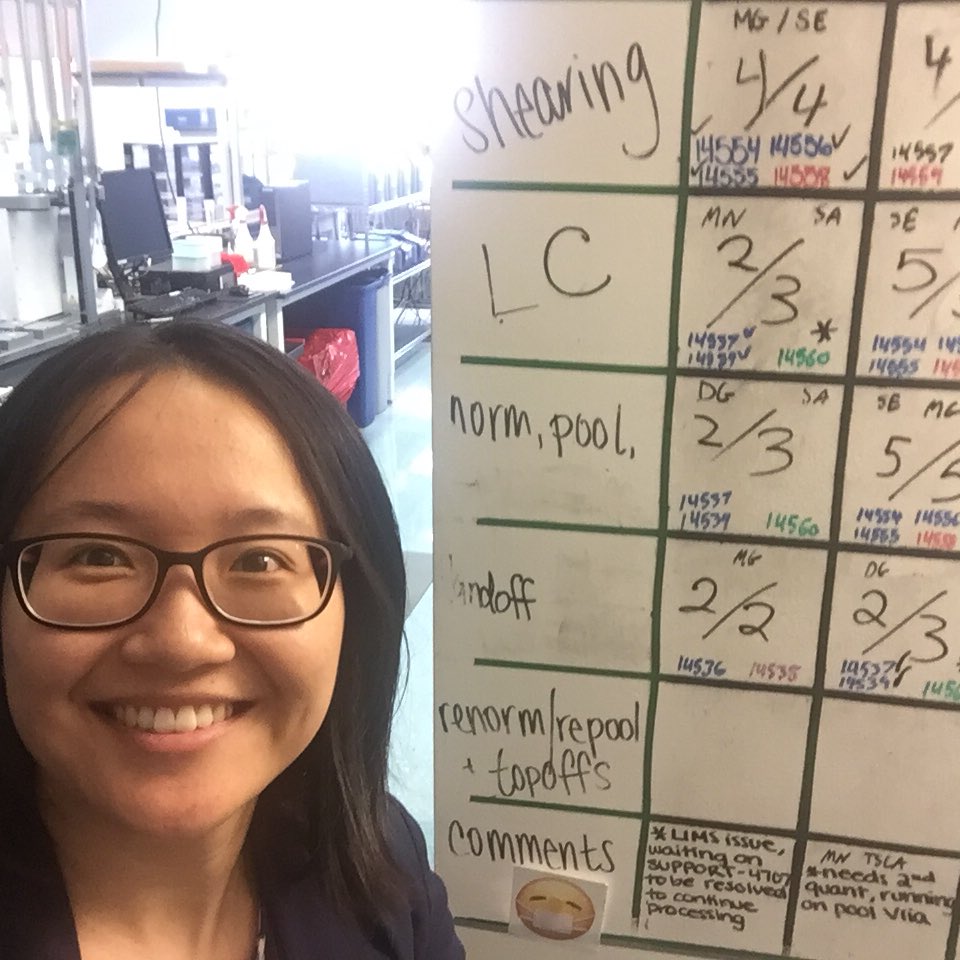 MG / SE
shearing
4/4
4
14554 14556
14555 14558
14557
14559
MN SA
SE
LC
2/3
5/
*
14537
14539 14560
14554
14555
DG SA
SE MG
norm, pool,
2/3
5/5
14537
14539 14560
14554 14556
14555 14558
MG
DG
handoff
2/2
2/3
14536 14535
14537
14539
renorm/repool
+ topoffs
comments
* LIMS issue,
waiting on
SUPPORT-4707
to be resolved
to continue
processing
MN TSCA
*needs 2nd
quant, running
on pool Vlia